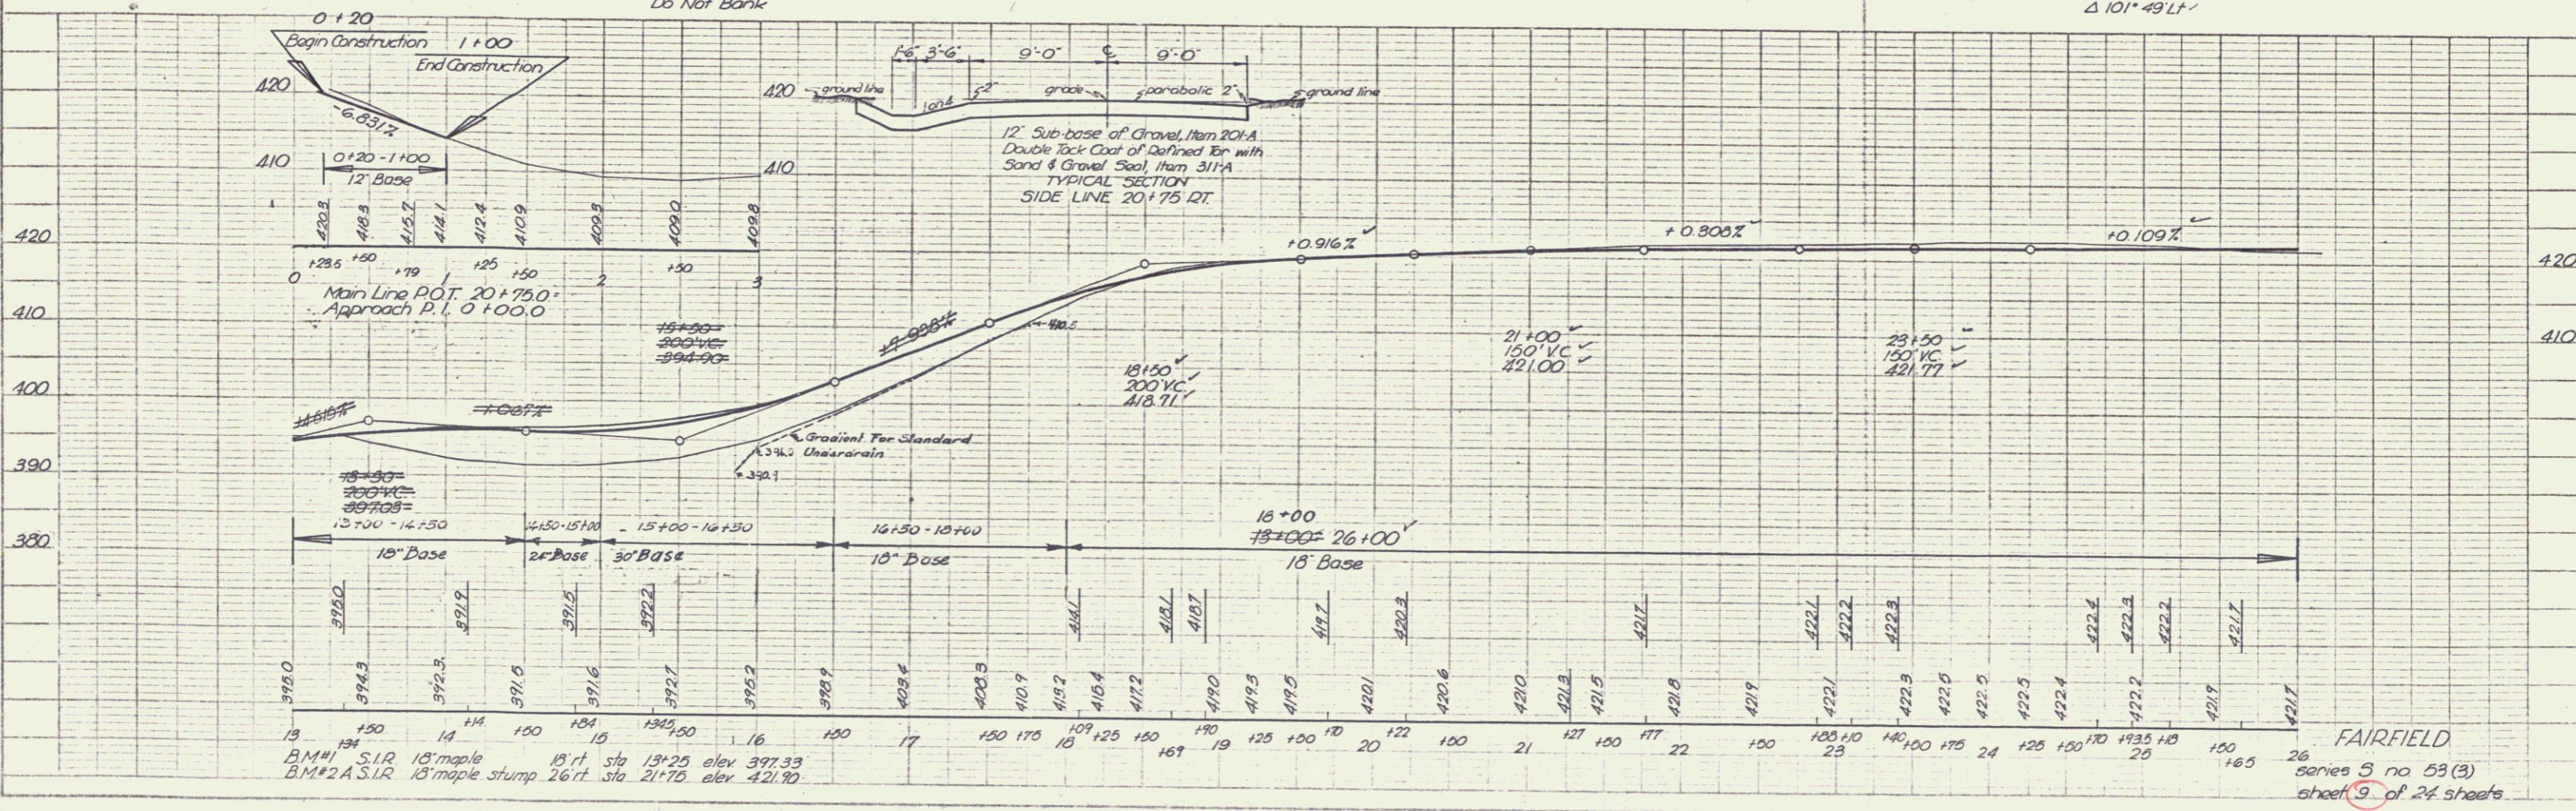 Do Not Bank
Δ 101° 49' Lt
0+20
Begin Construction
1+00
End Construction
420
-6.831%
410
0+20-1+00
12" Base
420
410
420.3 418.3 415.7 414.1 412.4 410.9 409.3 409.0 409.8
+23.5 +50 +79 +25 +50 +50
0 1 2 3
Main Line P.O.T. 20+75.0=
Approach P.I. 0+00.0
1'-6" 3'-6" 9'-0" ℄ 9'-0"
ground line
1 on 4
2"
grade
parabolic 2"
ground line
12" Sub-base of Gravel, Item 201-A
Double Tack Coat of Refined Tar with
Sand & Gravel Seal, Item 311-A
TYPICAL SECTION
SIDE LINE 20+75 RT.
420
410
400
390
380
420
410
+0.916%
+0.308%
+0.109%
15+50
200' V.C.
394.90
18+50
200' V.C.
418.71
21+00
150' V.C.
421.00
23+50
150' V.C.
421.77
Gradient For Standard
Underdrain
394.0
390.9
13+50
200' V.C.
397.03
13+00-14+50
14+50-15+00
15+00-16+50
16+50-18+00
18+00
13+00= 26+00
18" Base
24" Base
30" Base
18" Base
18" Base
395.0 391.9 391.5 392.2 414.1 418.1 418.7 419.7 420.3 421.7 422.1 422.2 422.3 422.4 422.3 422.2 421.7
395.0 394.3 392.3 391.5 391.6 392.7 395.2 398.9 403.4 408.3 410.9 413.2 415.4 417.2 419.0 419.3 419.5 420.1 420.6 421.0 421.3 421.5 421.8 421.9 422.1 422.3 422.5 422.5 422.5 422.4 422.2 421.9 421.7
13 +34 +50 14 +14 +50 +84 15 +34.5 +50 16 +50 17 +50 +75 18 +09 +25 +50 +69 +90 19 +25 +50 +70 20 +22 +50 21 +27 +50 +77 22 +50 +88 23 +10 +40 +50 +75 24 +25 +50 +70 +93.5 25 +18 +50 +65 26
B.M#1 S.I.R. 18" maple 18' rt sta 13+25 elev 397.33
B.M#2A S.I.R. 18" maple stump 26' rt sta 21+75 elev 421.90
FAIRFIELD
series S no. 53(3)
sheet 9 of 24 sheets